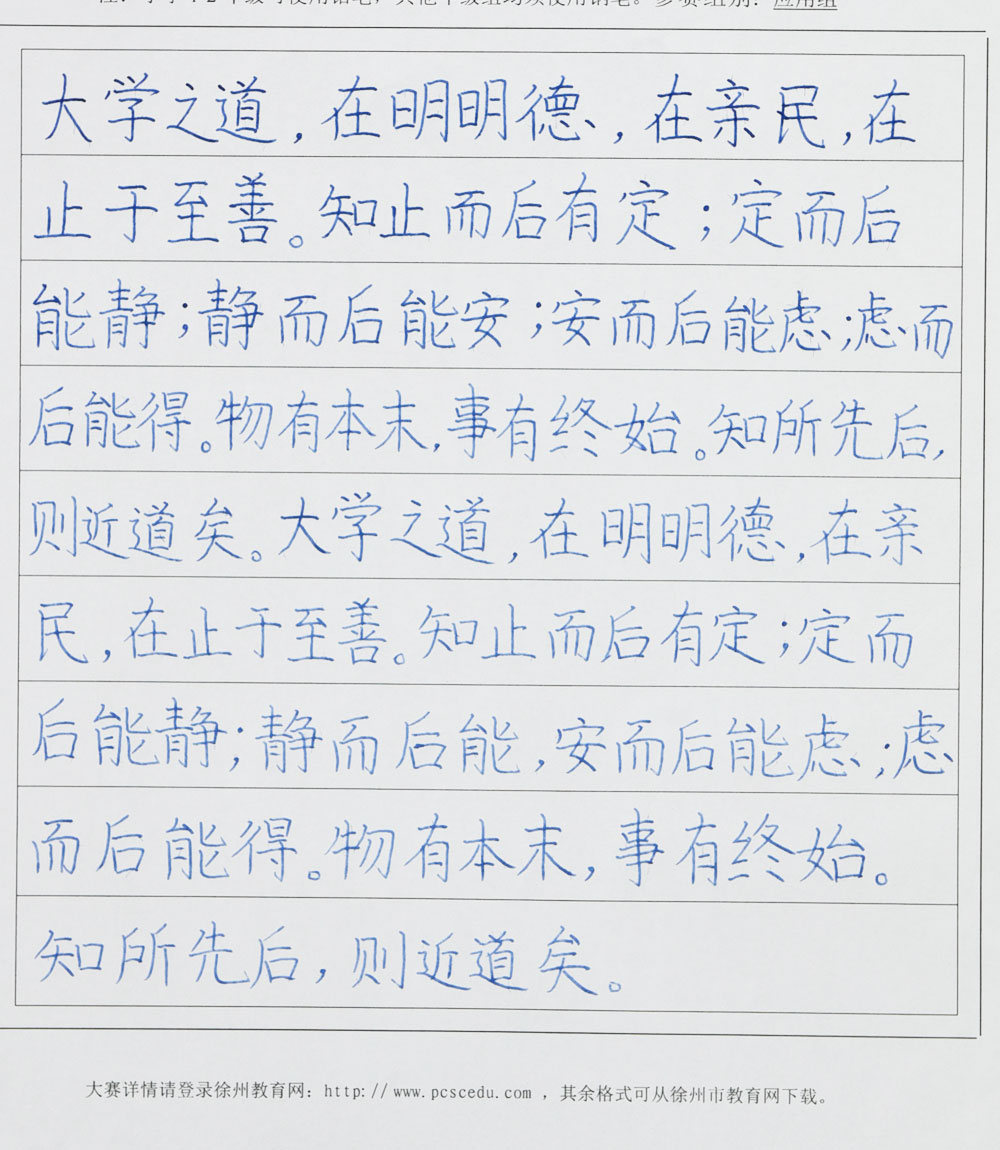 注：小学1-2年级可使用铅笔，其他年级组均须使用钢笔。参赛组别：应用组
大学之道，在明明德，在亲民，在
止于至善。知止而后有定；定而后
能静；静而后能安；安而后能虑；虑而
后能得。物有本末，事有终始。知所先后，
则近道矣。大学之道，在明明德，在亲
民，在止于至善。知止而后有定；定而
后能静；静而后能，安而后能虑；虑
而后能得。物有本末，事有终始。
知所先后，则近道矣。
大赛详情请登录徐州教育网：http://www.pcscedu.com ，其余格式可从徐州市教育网下载。